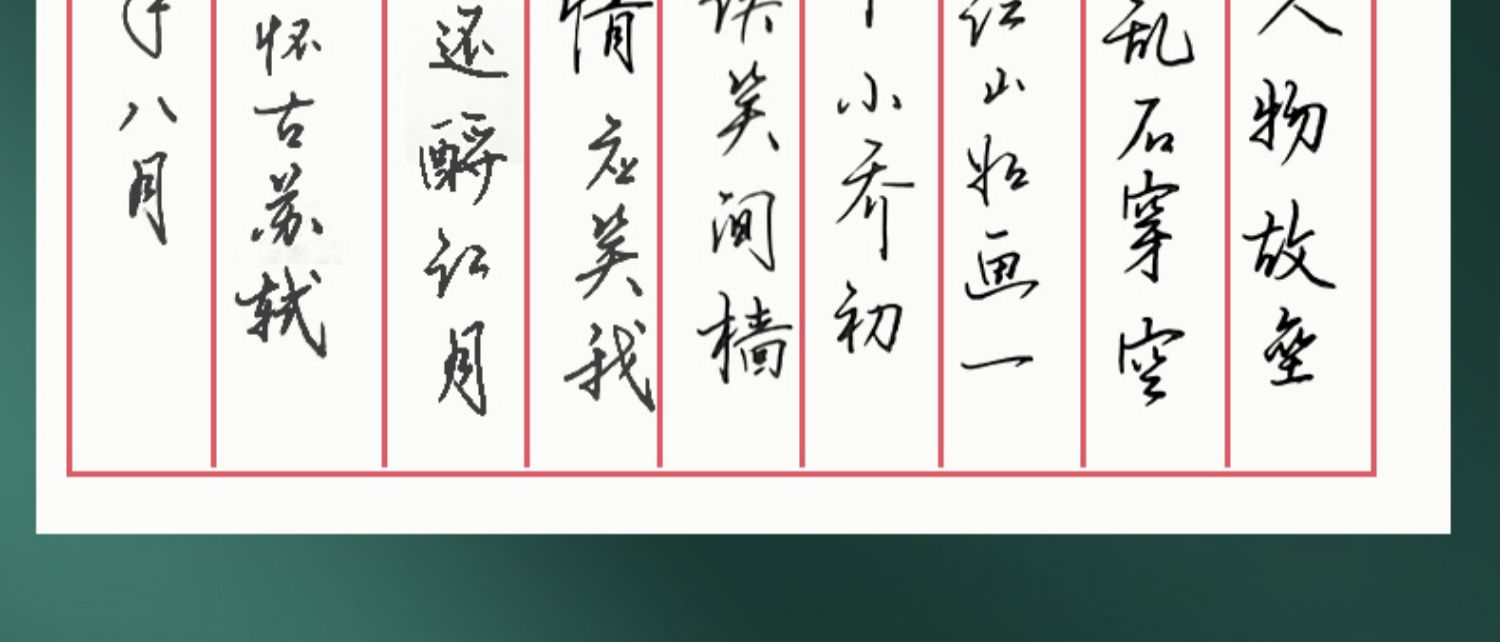 人物故垒
乱石穿空
江山如画一
小乔初
谈笑间樯
情应笑我
还酹江月
怀古苏轼
年八月